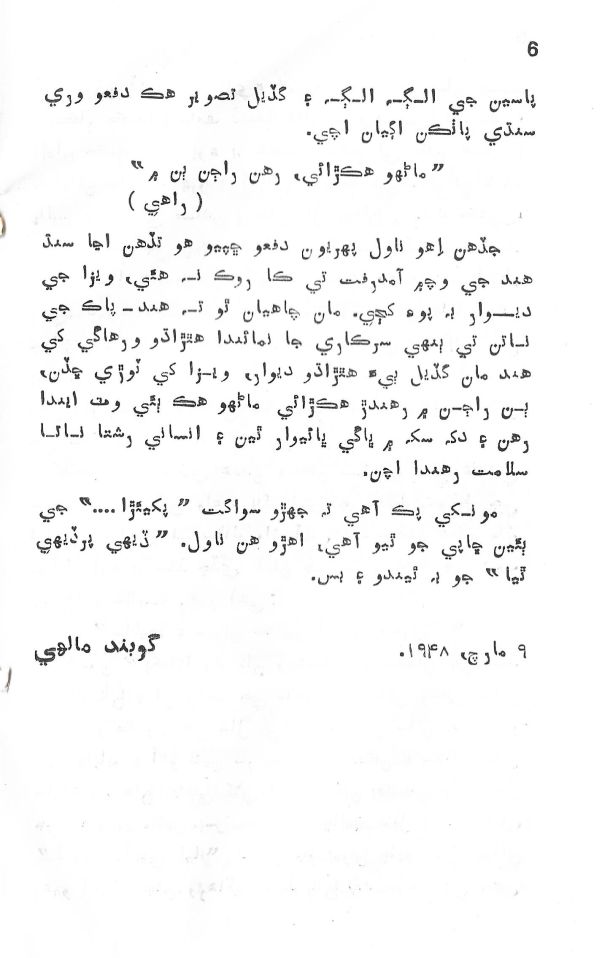 6
پاسين جي الڳ الڳ ۽ گڏيل تصوير هڪ دفعو وري
سنڌي پاٺڪن اڳيان اچي.
”ماڻهو هڪڙائي، رهن راڄن ٻن ۾“
( راهي )
جڏهن اِهو ناول پهريون دفعو ڇپيو هو تڏهن اڃا سنڌ
هند جي وچ ۾ آمدرفت تي ڪا روڪ نہ هئي، ويزا جي
ديوار بہ پوءِ کڄي. مان چاهيان ٿو تہ هند-پاڪ جي
ناتن تي ٻنهي سرڪاري جا نمائندا هٿراڌو ورهاڱي کي
هند مان گڏيل ٻيءَ هٿراڌو ديوار، ويزا کي ٽوڙي ڇڏن،
ٻن راڄن ۾ رهندڙ هڪڙائي ماڻهو هڪ ٻئي وٽ ايندا
رهن ۽ دک سک ۾ ڀاڱي ڀائيوار ٿين ۽ انساني رشتا ناتا
سلامت رهندا اچن.
مونکي پڪ آهي تہ جهڙو سواگت ”پکيئڙا ....“ جي
ٻئين ڇاپي جو ٿيو آهي، اهڙو هن ناول. ”ڏيهي پرڏيهي
ٿيا“ جو بہ ٿيندو ۽ بس.
۹ مارچ، ۱۹۴۸.
گوبند مالهي